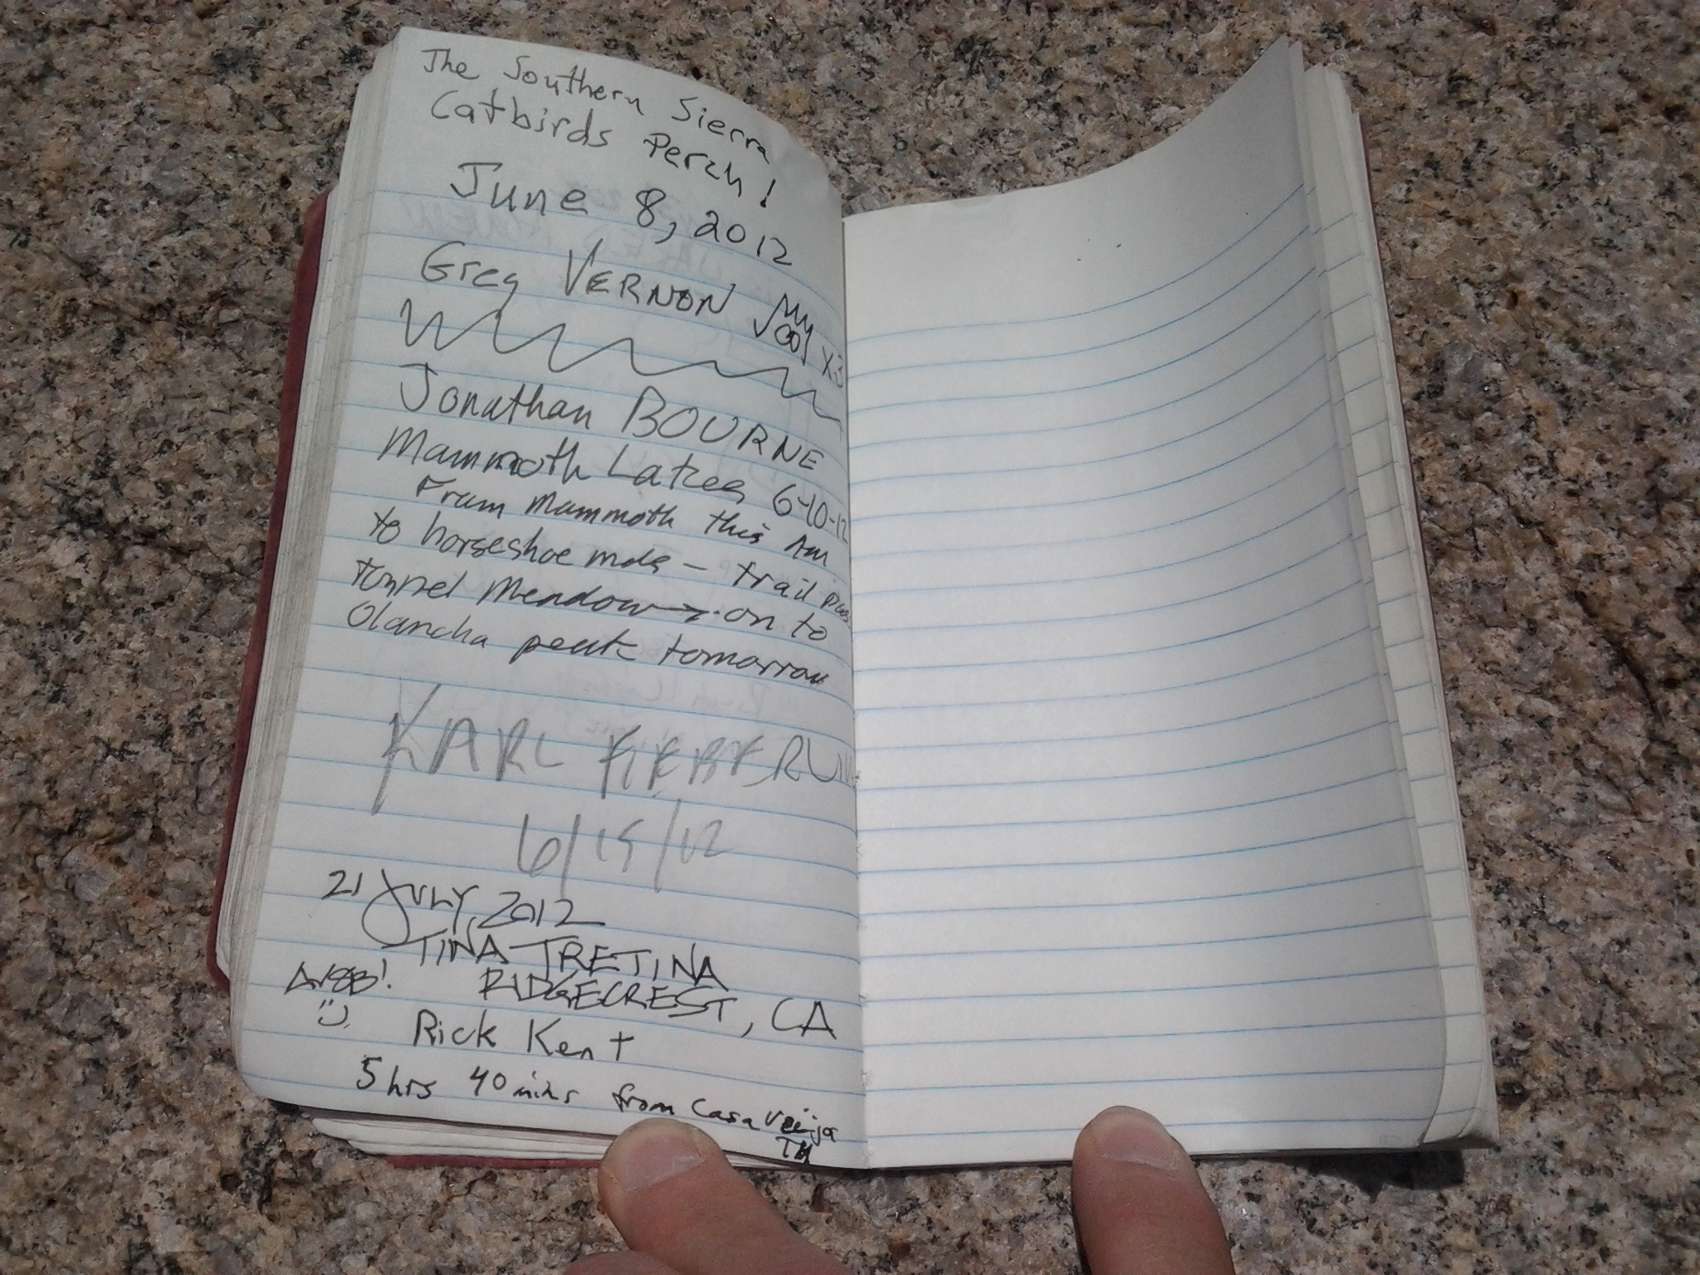 The Southern Sierra
Catbirds Perch!
June 8, 2012
Greg VERNON
Jonathan BOURNE
Mammoth Lakes 6-10-12
From Mammoth this Am
to horseshoe mds - trail pass
tunnel Meadow → on to
Olancha peak tomorrow
KARL
6/15/12
21 JULY, 2012
TINA TRETINA
RIDGECREST, CA
Rick Kent
5 hrs 40 mins from Casa Vieja
TH